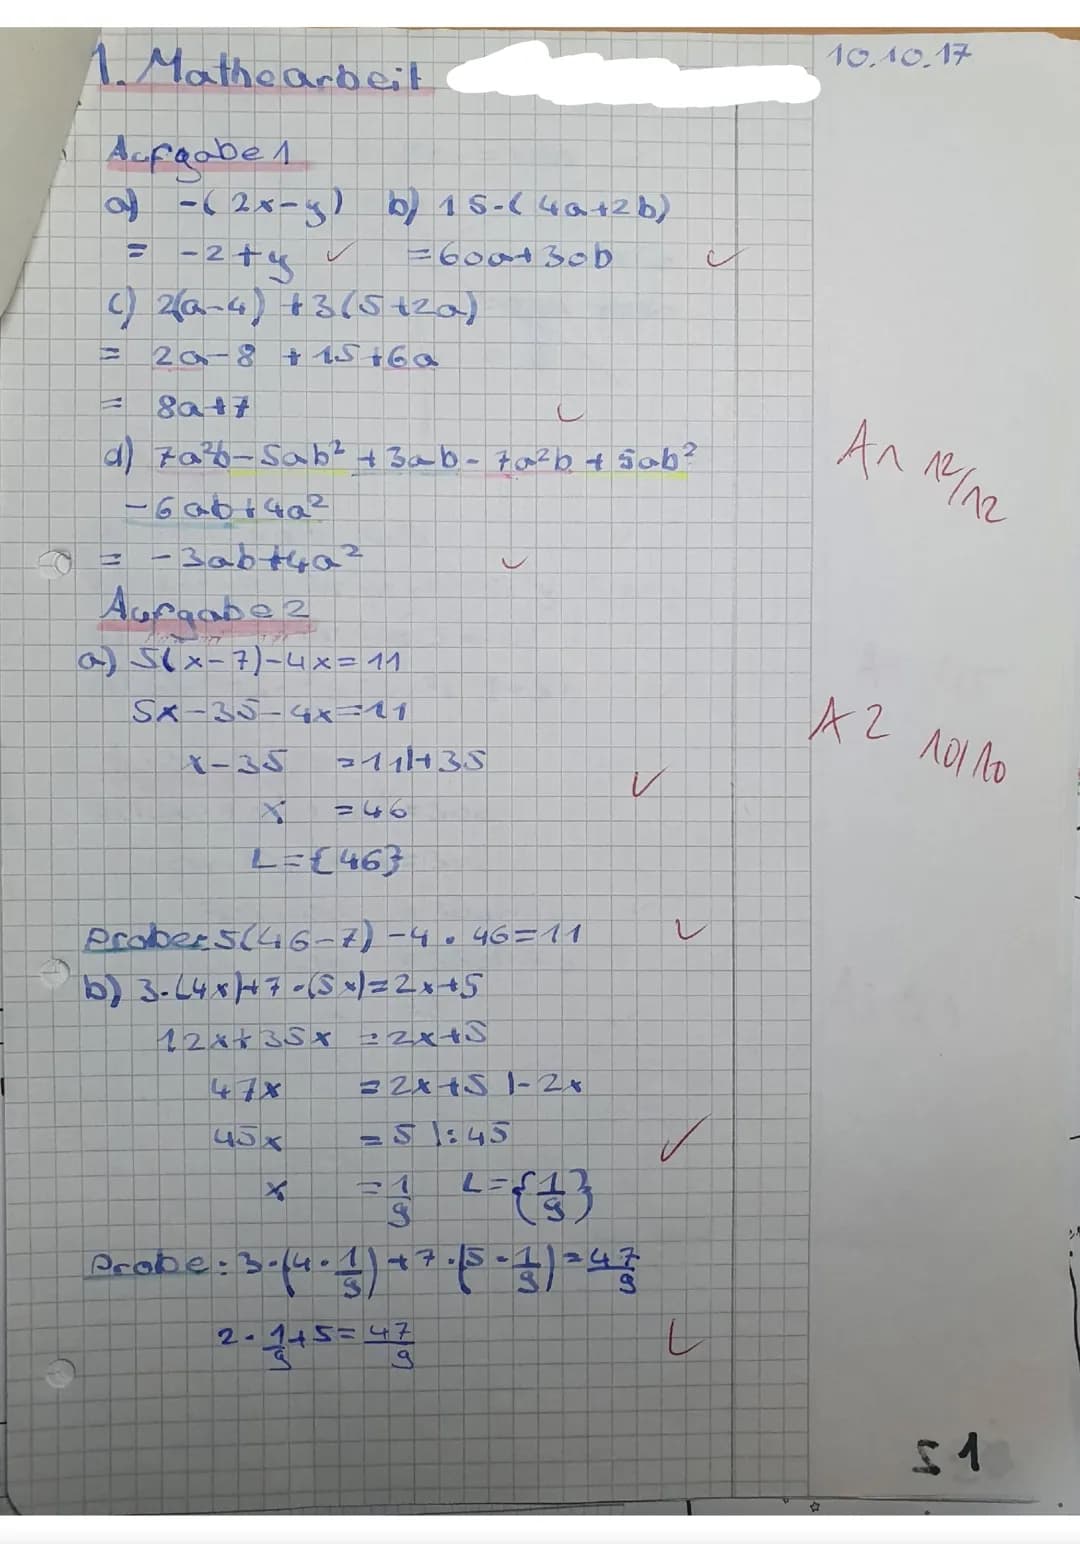 1. Mathearbeit 10.10.17
Aufgabe 1
a) -(2x-y) b) 15·(4a+2b)
= -2+y =60a+30b
c) 2(a-4)+3(5+2a)
= 2a-8+15+6a
= 8a+7
d) 7a²b-5ab²+3ab-7a²b+5ab²
-6ab+4a²
= -3ab+4a²
A1 12/12
Aufgabe 2
a) 5(x-7)-4x=11
5x-35-4x=11
x-35 =11|+35
x =46
L={46}
A2 10/10
Probe: 5(46-7)-4·46=11
b) 3·(4x)+7·(5x)=2x+5
12x+35x =2x+5
47x =2x+5 |-2x
45x =5 |:45
x =1/9 L={1/9}
Probe: 3·(4·1/9)+7·(5·1/9)=47/9
2·1/9+5=47/9
S1